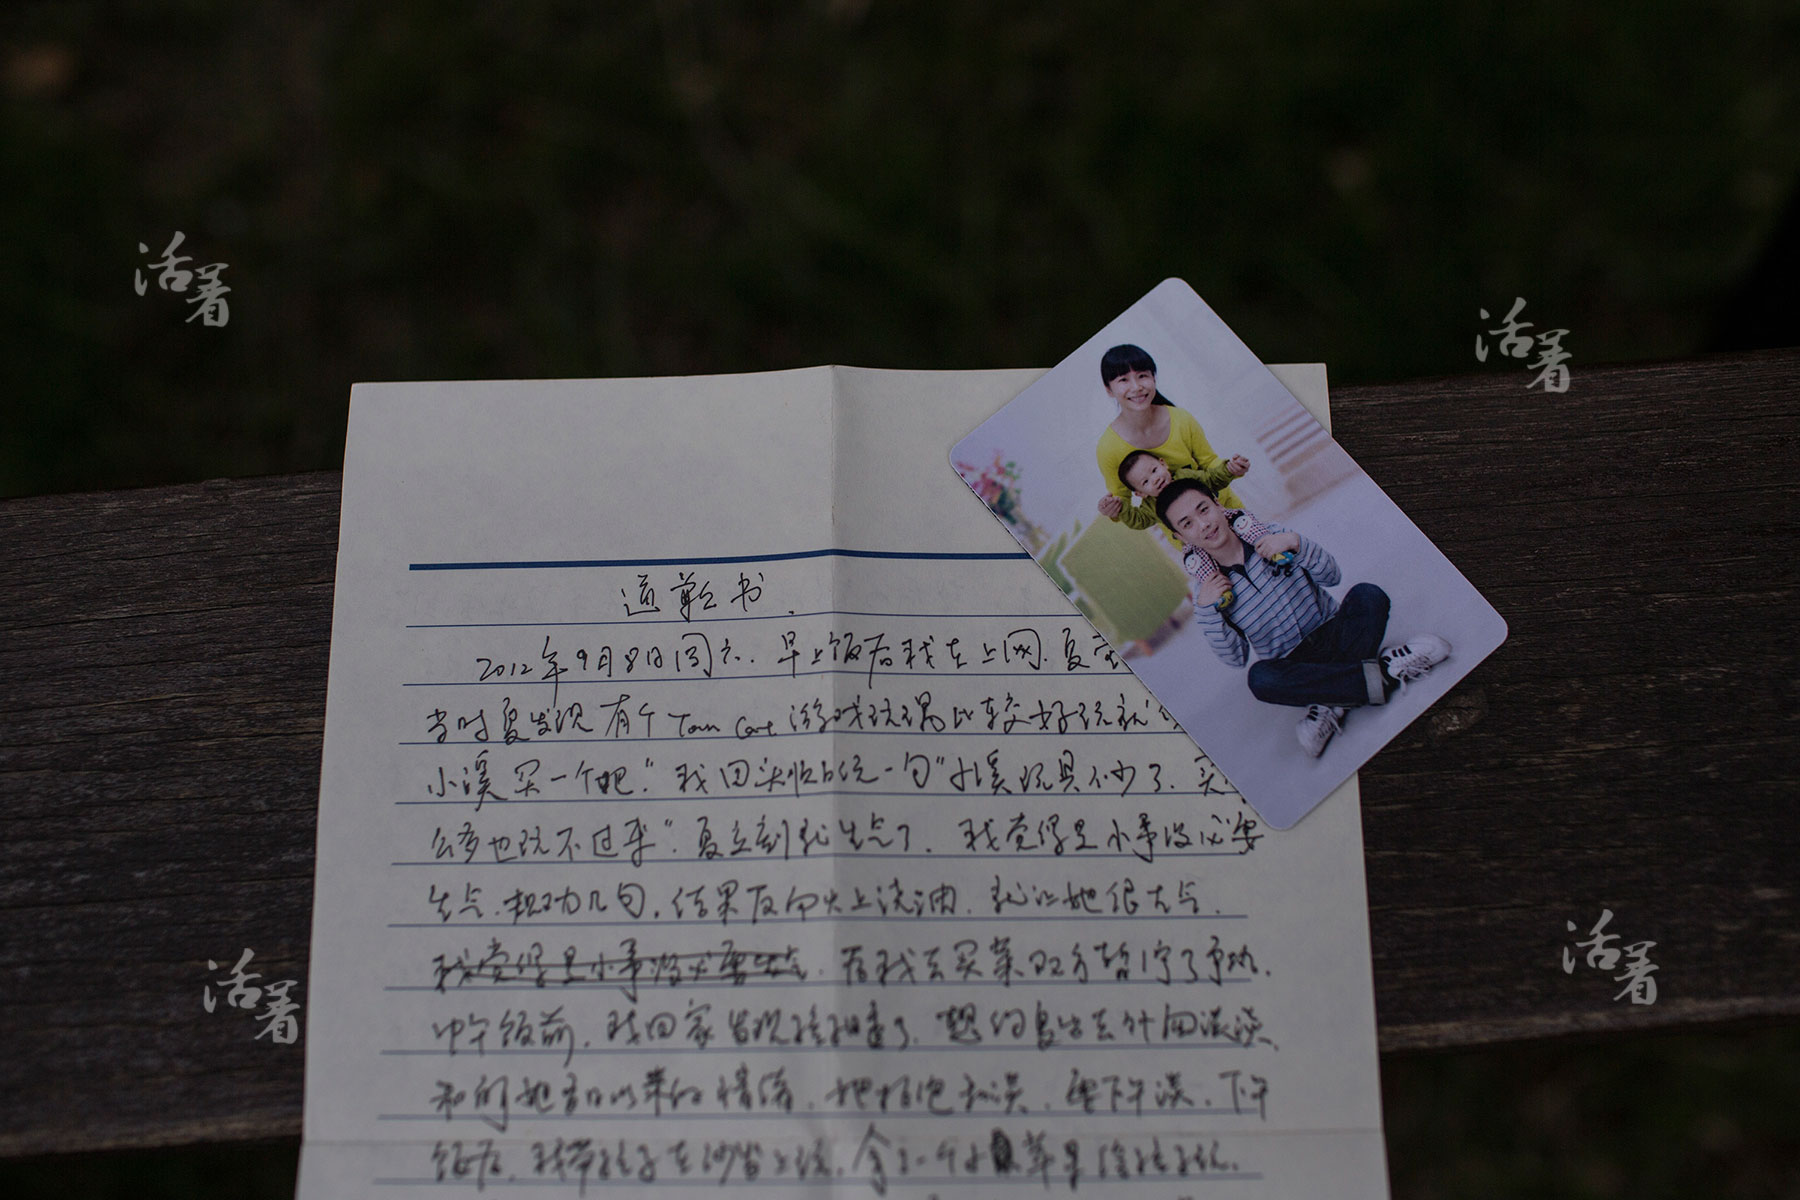 活着
活着
道歉书.
2012年9月8日周六.早上饭后我在上网.夏
当时夏发现有个 Town Cont 游戏玩偶比较好玩就
小溪买一个吧."我回头怕的说一句"小溪玩具不少了.买
么多也玩不过来".夏立刻就生气了.我觉得是小事没必要
生气.相劝几句,结果反而火上浇油.就让她很大气.
我觉得是小事没必要生气.后我去买菜双方暂停了争吵.
中午饭前.我回家发现孩子睡着了.想约夏出去外面谈谈.
和问她近日以来的情绪.她拒绝谈.要下午谈.下午
饭后.我带孩子在沙发上玩.拿了一个小苹果给孩子玩.
活着
活着